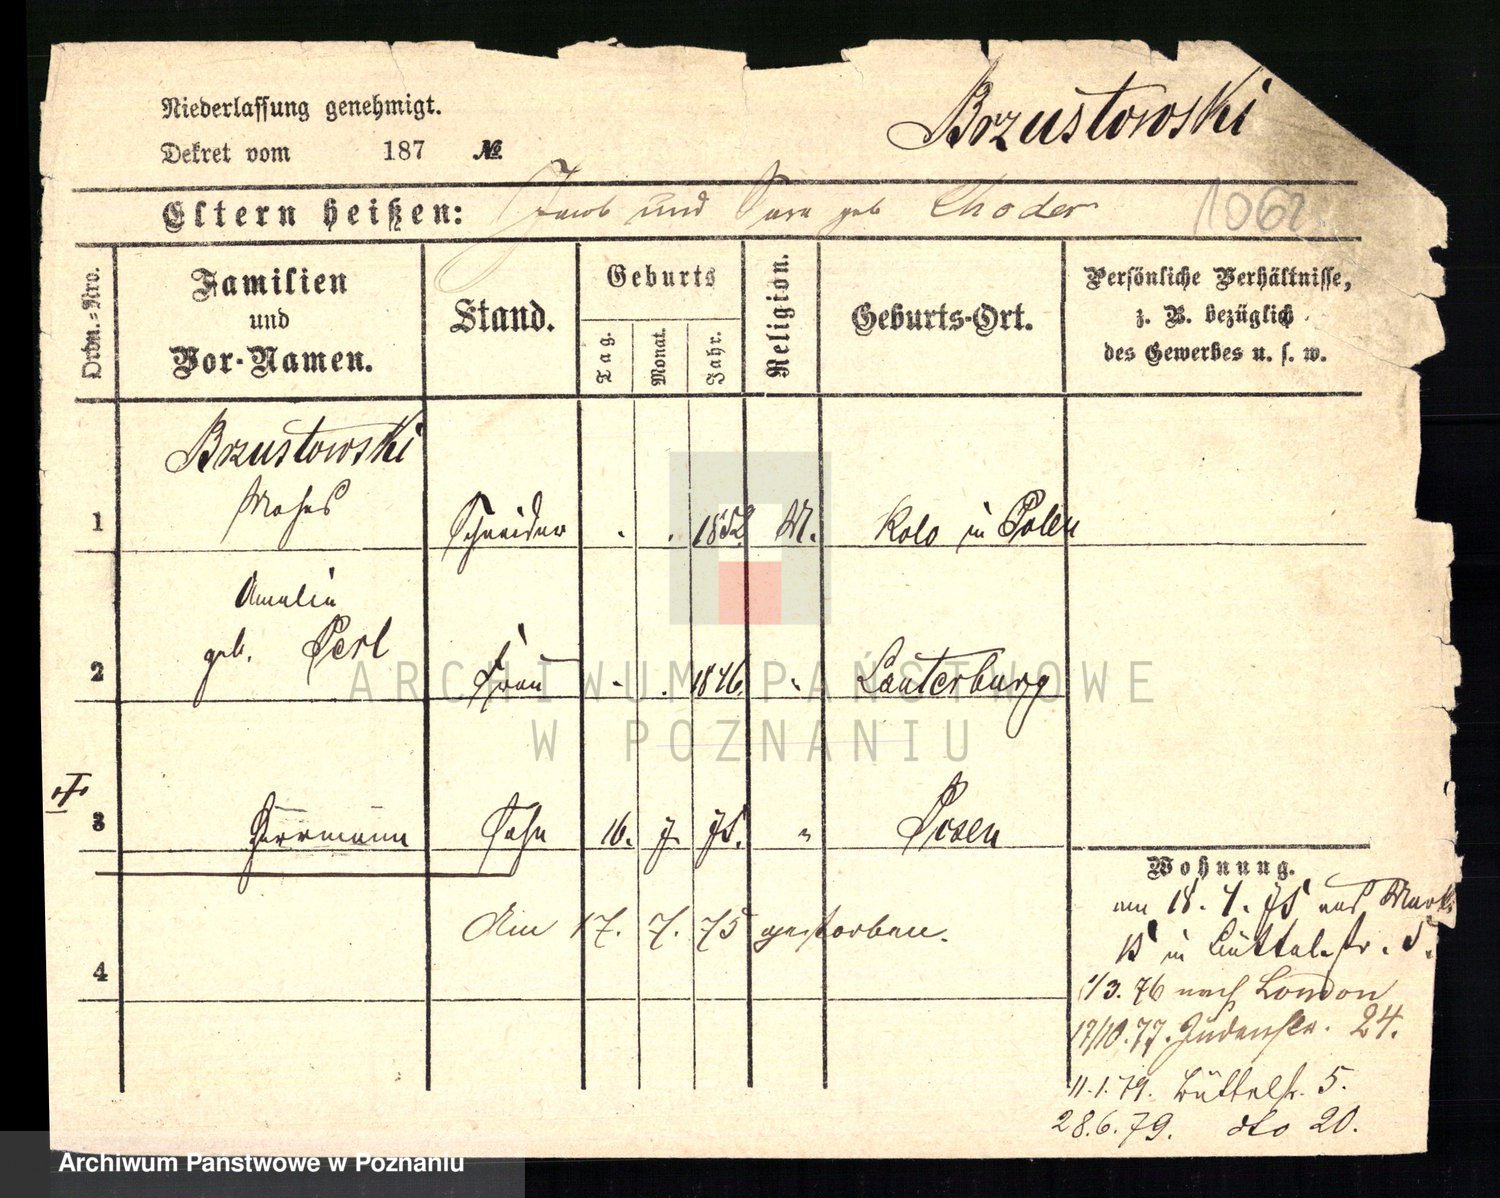 Niederlassung genehmigt.
Dekret vom 187 №
Brzustowski
Eltern heißen: Jacob und Sara geb Choder
1062
Ordn.-Nro.
Familien
und
Vor-Namen.
Stand.
Geburts
Tag.
Monat.
Jahr.
Religion.
Geburts-Ort.
Persönliche Verhältnisse,
z. B. bezüglich
des Gewerbes u. s. w.
Brzustowski
1 Moses Schneider . . 1852 M. Kolo in Polen
Amalie
geb. Perl
2 Frau . . 1846 " Lauterburg
3 Herrmann Sohn 16. 7. 75. " Posen
Am 17. 7. 75 gestorben.
4
Wohnung.
am 18. 7. 75 aus Markt
in Büttelstr. 5.
1/3. 76 nach London
17/10. 77. Judenstr. 24.
11.1.79. Büttelstr. 5.
28.6.79. dto 20.
ARCHIWUM PAŃSTWOWE
W POZNANIU
Archiwum Państwowe w Poznaniu